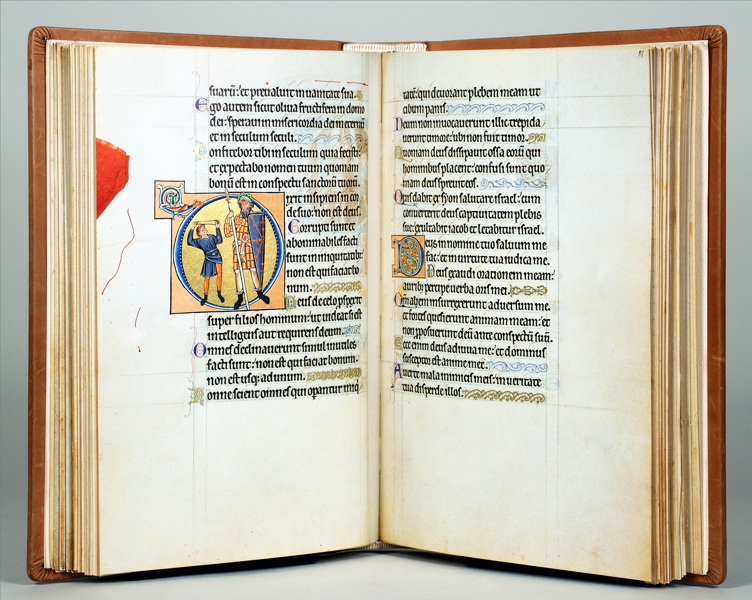 suarū: et preualuit in uanitate sua.
Ego autem sicut oliua fructifera in domo
dei: speraui in misericordia dei in eternū
et in seculum seculi.
Confitebor tibi in seculum quia fecisti:
et expectabo nomen tuum quoniam
bonū est in conspectu sanctorū tuorū.
Dixit insipiens in cor
de suo: non est deus.
Corrupti sunt et
abominabiles facti
sunt in iniquitatibꝫ:
non est qui faciat bo
num.
Deus de celo prospexit
super filios hominum: ut uideat si est
intelligens aut requirens deum.
Omnes declinauerunt simul inutiles
facti sunt: non est qui faciat bonum.
non est usqꝫ ad unum.
Nonne scient omnes qui operantur iniqi
tatē: qui deuorant plebem meam ut
cibum panis.
Deum non inuocauerunt illic trepida
uerunt timore: ubi non fuit timor.
Quoniam deus dissipauit ossa eorū qui
hominibus placent: confusi sunt quo
niam deus spreuit eos.
Quis dabit ex syon salutare israel: cum
conuerterit deus captiuitatem plebis
sue: exultabit iacob et letabitur israel.
Deus in nomine tuo saluum me
fac: et in uirtute tua iudica me.
Deus exaudi orationem meam:
auribꝫ percipe uerba oris mei.
Qm̄ alieni insurrexerunt aduersum me.
et fortes quesierunt animam meam: et
non proposuerunt deū ante conspectū suū.
Ecce enim deus adiuua me: et dominus
susceptor est anime mee.
Auerte mala inimicis meis: in ueritate
tua disperde illos.